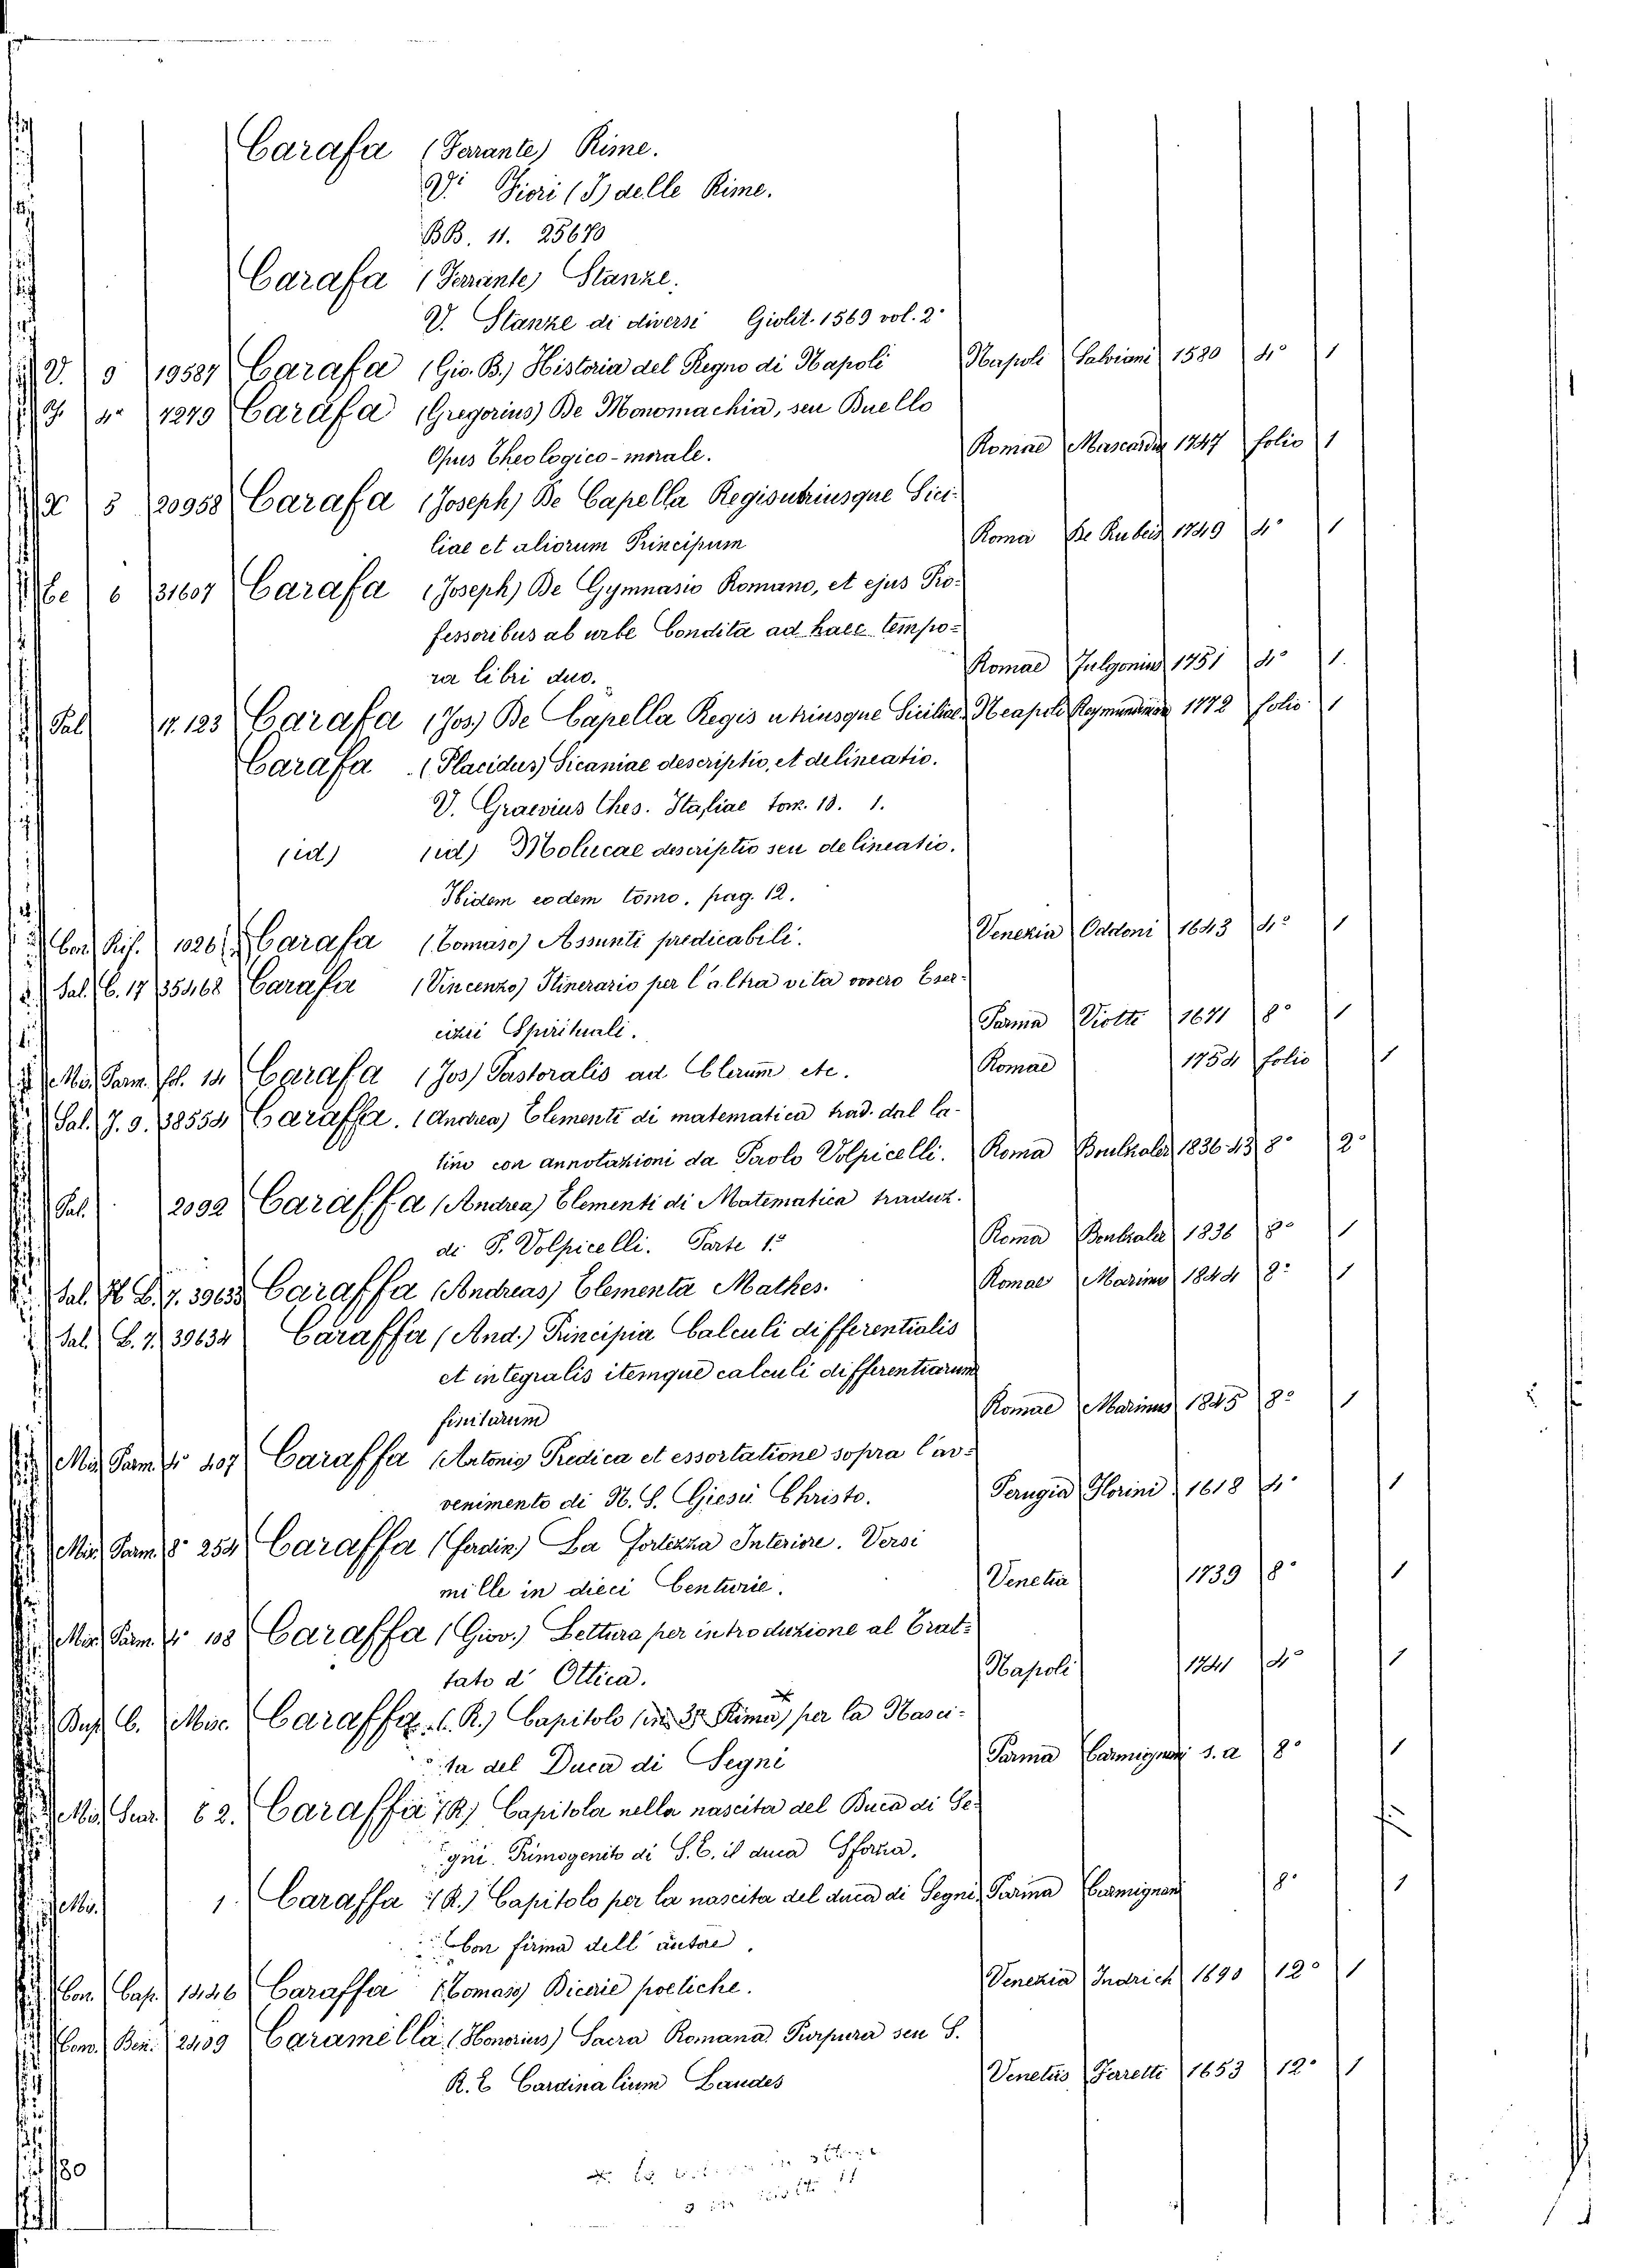 Carafa (Ferrante) Rime.
V. Fiori (I) delle Rime.
BB. 11. 25670
Carafa (Ferrante) Stanze.
V. Stanze di diversi Giolit. 1569 vol. 2°
V. 9 19587 Carafa (Gio. B.) Historia del Regno di Napoli Napoli Salviani 1580 4° 1
4° 1279 Carafa (Gregorius) De Monomachia, seu Duello
Opus Theologico-morale. Romae Mascardi 1747 folio 1
5 20958 Carafa (Joseph) De Capella Regis utriusque Sici-
liae et aliorum Principum Roma De Rubeis 1749 4° 1
6 31607 Carafa (Joseph) De Gymnasio Romano, et ejus Pro-
fessoribus ab urbe Condita ad haec tempo-
ra libri duo. Romae Fulgonius 1751 4° 1
Pal 17.123 Carafa (Jos.) De Capella Regis utriusque Siciliae Neapoli 1772 folio 1
Carafa (Placidus) Sicaniae descriptio, et delineatio.
V. Graevius Thes. Italiae tom. 13. 1.
(id) (id) Motucae descriptio seu delineatio.
Ibidem eodem tomo, pag. 12.
Con. Rif. 1026 Carafa (Tomaso) Assunti predicabili. Venezia Oddoni 1643 4° 1
Sal. C. 17 35468 Carafa (Vincenzo) Itinerario per l'altra vita overo Eser-
cizii Spirituali. Parma Viotti 1671 8° 1
Mis. Parm. fol. 14 Carafa (Jos) Pastoralis ad Clerum etc. Romae 1754 folio 1
Sal. J. 9. 38554 Caraffa. (Andrea) Elementi di matematica trad. dal la-
tino con annotazioni da Paolo Volpicelli. Roma 1836-43 8° 2
Sal. 2092 Caraffa (Andrea) Elementi di Matematica traduz.
di P. Volpicelli. Parte 1ª Roma 1836 8° 1
Sal. 39633 Caraffa (Andreas) Elementa Mathes. Romae Marini 1844 8° 1
Sal. C. 7. 39634 Caraffa (And.) Principia Calculi differentialis
et integralis itemque calculi differentiarum
finitarum Romae Marinus 1845 8° 1
Mis. Parm. 4° 407 Caraffa (Antonio) Predica et essortatione sopra l'av-
venimento di N. S. Giesù Christo. Perugia Florini 1618 4° 1
Mis. Parm. 8° 254 Caraffa (Ferdin) La Fortezza Interiore. Versi
mille in dieci Centurie. Venetia 1739 8° 1
Mis. Parm. 4° 108 Caraffa (Giov.) Lettura per introduzione al Trat-
tato d' Ottica. Napoli 1741 4° 1
C. Misc. Caraffa (R.) Capitolo (in 3ª Rima) per la Nasci-
ta del Duca di Segni Parma Carmignani s. a 8° 1
62. Caraffa (R) Capitola nella nascita del Duca di Se-
gni. Primogenito di S. E. il duca Sforza.
Mis. 1. Caraffa (R.) Capitolo per la nascita del duca di Segni Parma Carmignani 8° 1
Con firma dell' autore.
Con. Cap. 1446 Caraffa (Tomaso) Bicerie poetiche. Venezia Indrich 1690 12° 1
Con. Ben. 2409 Caramella (Honorius) Sacra Romana Purpura seu S.
R. E Cardinalium Laudes Venetiis Ferretti 1653 12° 1
80